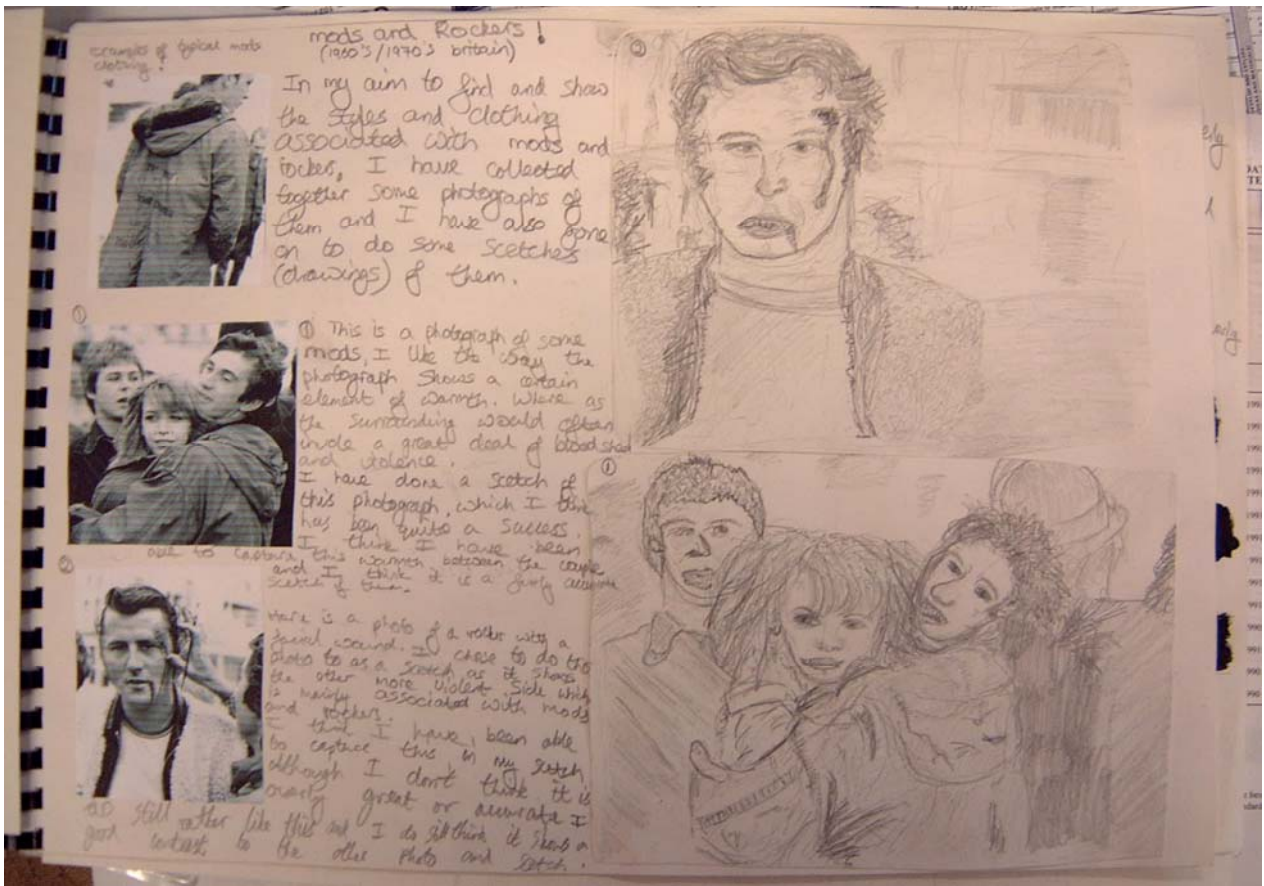 mods and Rockers!
(1960's/1970's britain)
examples of typical mods
clothing!
In my aim to find and show
the styles and clothing
associated with mods and
rocker, I have collected
together some photographs of
them and I have also gone
on to do some scetches
(drawings) of them.
①
① This is a photograph of some
mods, I like the way the
photograph shows a certain
element of warmth. Where as
the surrounding would often
invole a great deal of blood shed
and violence.
I have done a scetch of
this photograph, which I think
has been quite a success.
I think I have been
able to capture this warmth between the couple
and I think it is a fairly accurate
scetch of them.
②
Here is a photo of a rocker with a
facial wound. I chose to do this
photo to as a scetch as it shows
the other more violent side which
is mainly associated with mods
and rockers.
I think I have, been able
to capture this in my scetch
although I don't think it is
great or accurate I
do still rather like this and I do still think it shows a
good contrast to the other photo and scetch.
②
①